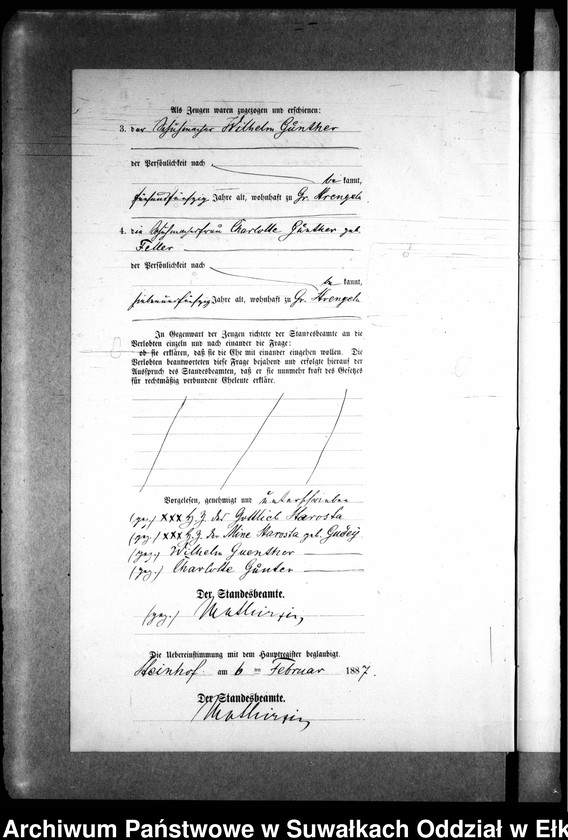 Als Zeugen waren zugezogen und erschienen:
3. der Schuhmacher Wilhelm Günther
der Persönlichkeit nach
be kannt,
Jahre alt, wohnhaft zu Gr. Strengeln
4. die Schuhmacherfrau Charlotte Günther geb.
Feller
der Persönlichkeit nach
be kannt,
Jahre alt, wohnhaft zu Gr. Strengeln
In Gegenwart der Zeugen richtete der Standesbeamte an die
Verlobten einzeln und nach einander die Frage:
ob sie erklären, daß sie die Ehe mit einander eingehen wollen. Die
Verlobten beantworteten diese Frage bejahend und erfolgte hierauf der
Ausspruch des Standesbeamten, daß er sie nunmehr kraft des Gesetzes
für rechtmäßig verbundene Eheleute erkläre.
Vorgelesen, genehmigt und unterschrieben
(gez.) XXX H. Z. des Gottlieb Starosta
(gez.) XXX H. Z. der Mine Starosta geb.
(gez.) Wilhelm Guenther
(gez.) Charlotte Günter
Der Standesbeamte.
(gez.)
Die Uebereinstimmung mit dem Hauptregister beglaubigt.
Steinhof am 6 ten Februar 1887.
Der Standesbeamte.
Archiwum Państwowe w Suwałkach Oddział w Ełk